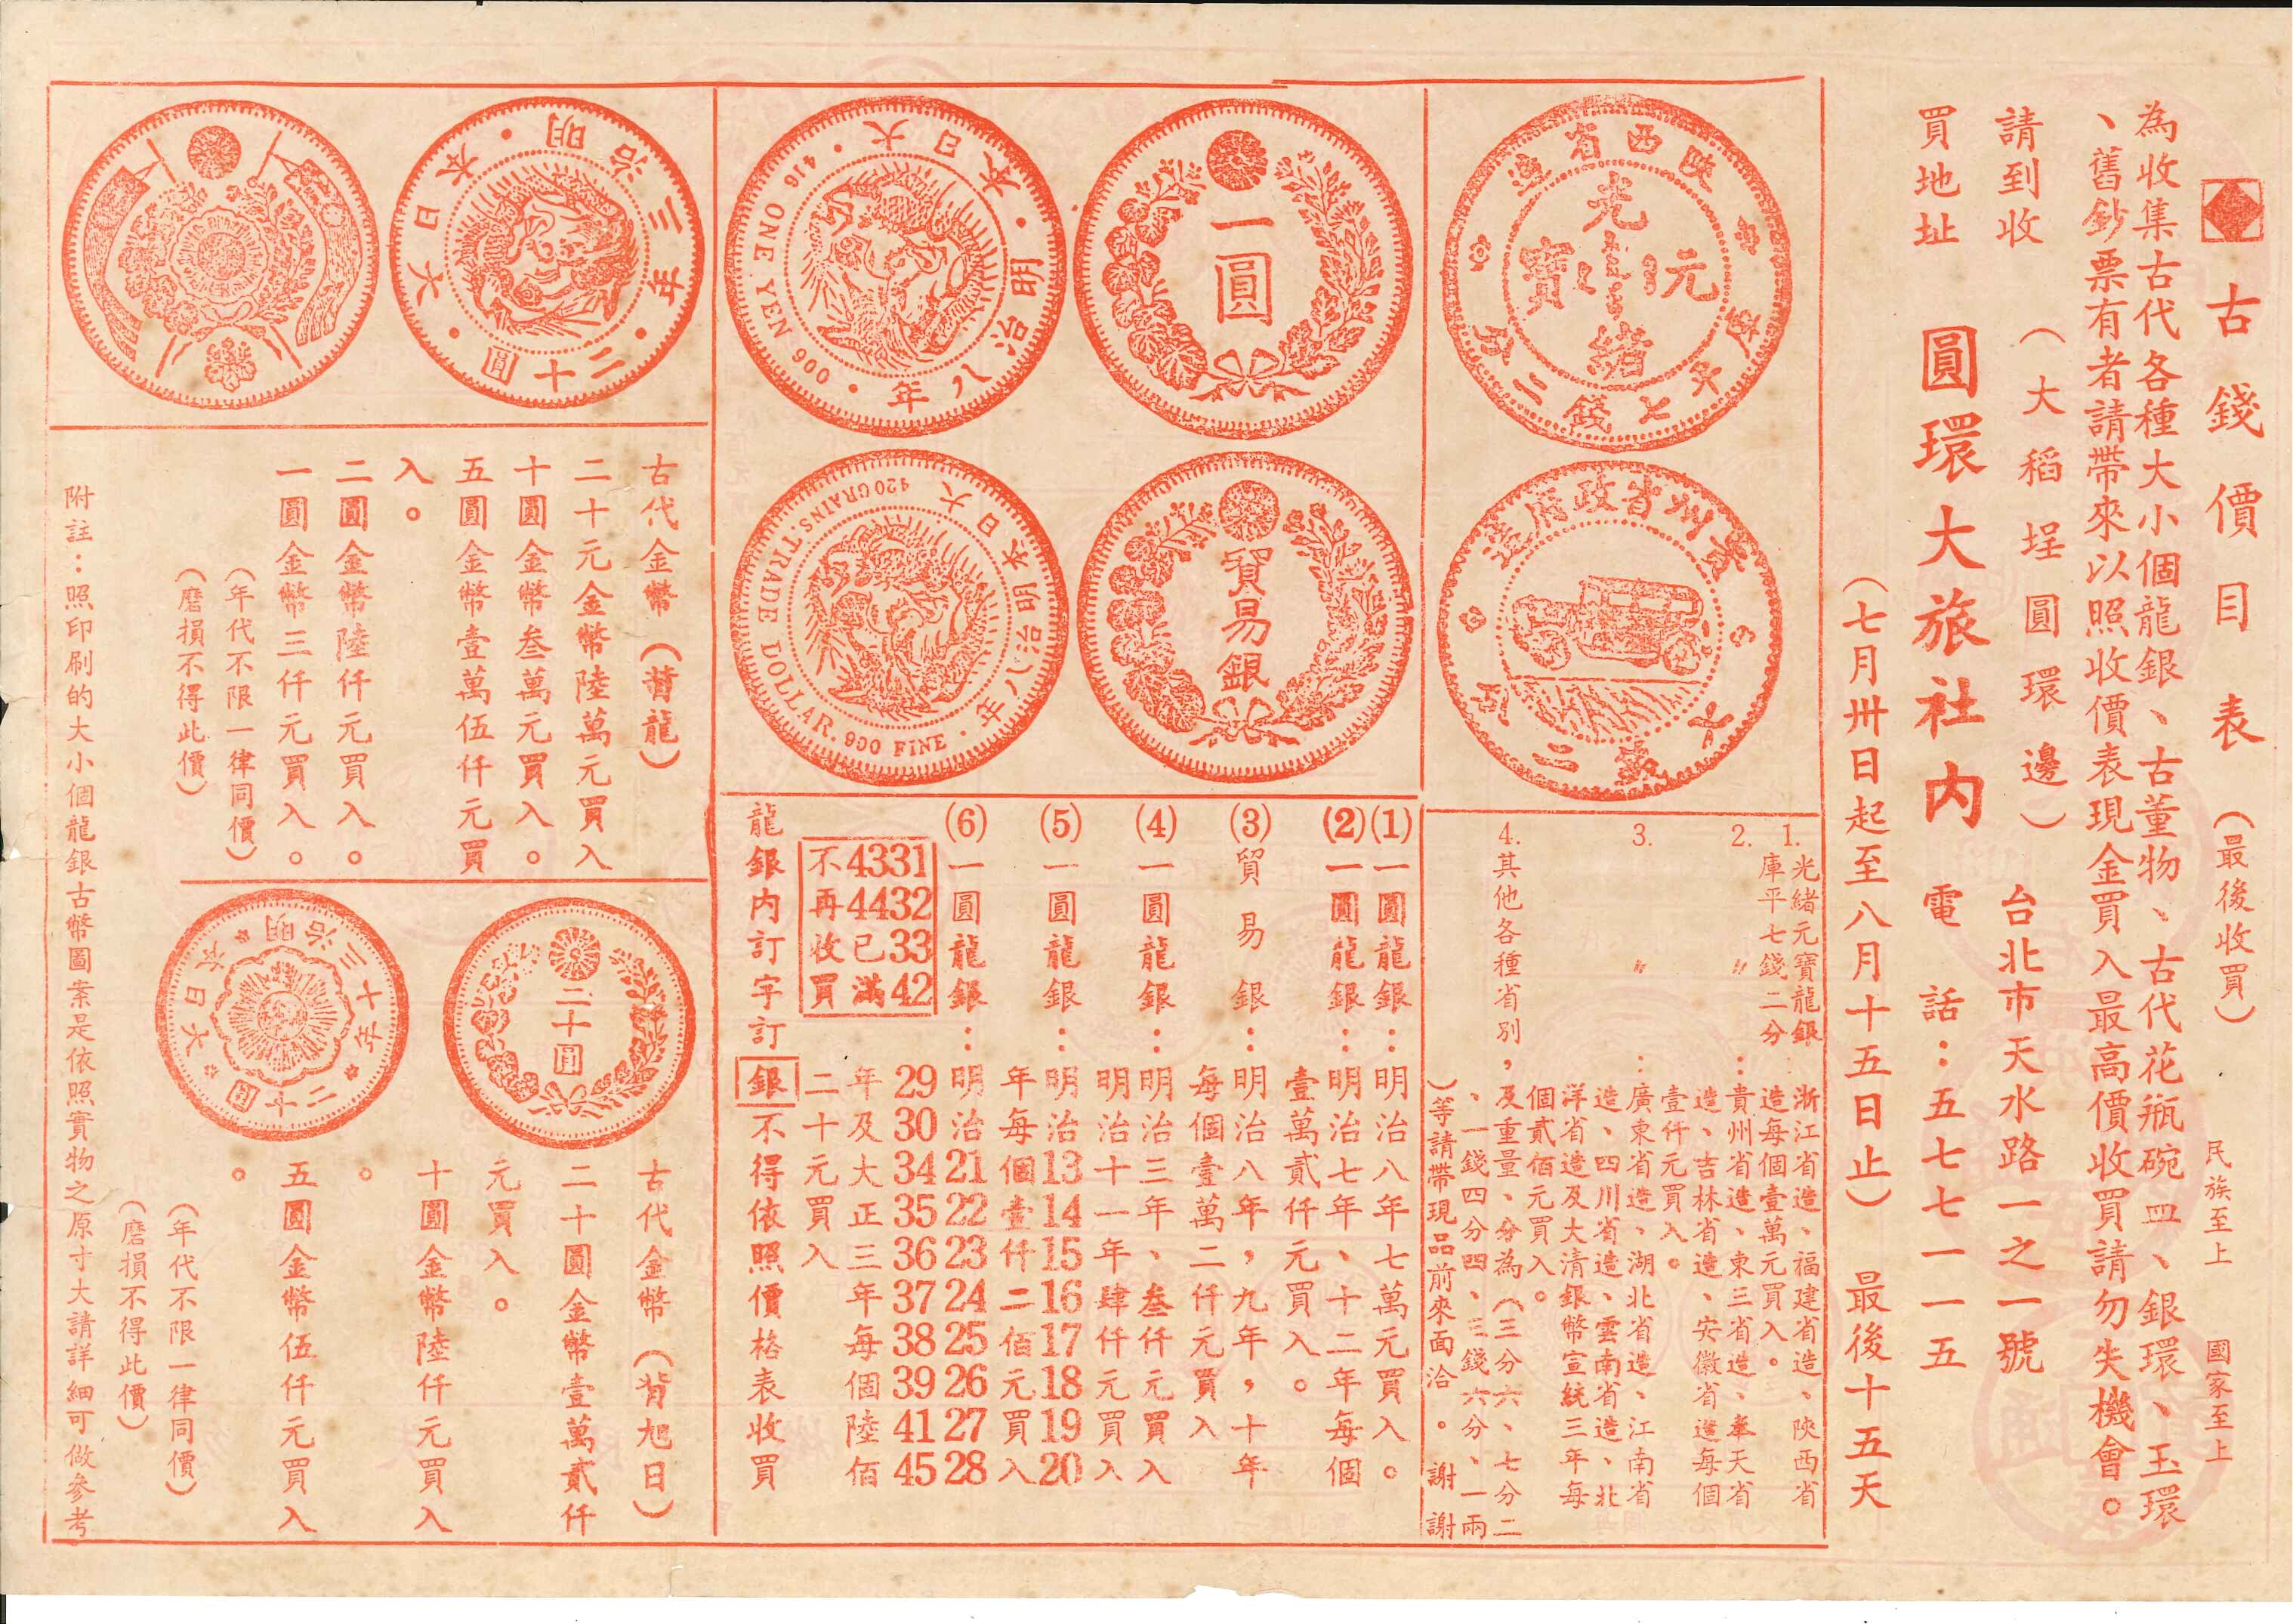 古錢價目表（最後收買）
民族至上 國家至上
為收集古代各種大小個龍銀、古董物、古代花瓶碗皿、銀環、玉環
、舊鈔票有者請帶來以照收價表現金買入最高價收買請勿失機會。
請到收
買地址
（大稻埕圓環邊）
台北市天水路一之一號
圓環大旅社內
電話：五七七一一五
（七月卅日起至八月十五日止）最後十五天
陝西省造
光緒元寶
庫平七錢二分
貴州省政府造
七錢二分
1.光緒元寶龍銀：浙江省造、福建省造、陝西省
庫平七錢二分
造每個壹萬元買入。
2. 〃 ：貴州省造、東三省造、奉天省
造、吉林省造、安徽省造每個
壹仟元買入。
3. 〃 ：廣東省造、湖北省造、江南省
造、四川省造、雲南省造、北
洋省造及大清銀幣宣統三年每
個貳佰元買入。
4.其他各種省別，及重量、分為（三分六、七分二
、一錢四分四、三錢六分、一兩
）等請帶現品前來面洽。謝謝
一圓
大日本・明治八年・416 ONE YEN 900・
貿易銀
大日本明治八年・420GRAINS.TRADE DOLLAR.900 FINE・
(1)一圓龍銀：明治八年七萬元買入。
(2)一圓龍銀：明治七年、十二年每個
壹萬貳仟元買入。
(3)貿易銀：明治八年，九年，十年
每個壹萬二仟元買入
(4)一圓龍銀：明治三年、叁仟元買入
明治十一年肆仟元買入
(5)一圓龍銀：明治13 14 15 16 17 18 19 20
年每個壹仟二佰元買入
(6)一圓龍銀：明治21 22 23 24 25 26 27 28
29 30 34 35 36 37 38 39 41 45
年及大正三年每個陸佰
二十元買入
31 32 33 42
43 44已滿
不再收買
龍銀內訂字訂銀不得依照價格表收買
大日本・明治三年・二十圓・
古代金幣（背龍）
二十元金幣陸萬元買入
十圓金幣叁萬元買入。
五圓金幣壹萬伍仟元買
入。
二圓金幣陸仟元買入。
一圓金幣三仟元買入。
（年代不限一律同價）
（磨損不得此價）
二十圓
大日本 明治三十年 二十圓
古代金幣（背旭日）
二十圓金幣壹萬貳仟
元買入。
十圓金幣陸仟元買入
。
五圓金幣伍仟元買入
。
（年代不限一律同價）
（磨損不得此價）
附註：照印刷的大小個龍銀古幣圖案是依照實物之原寸大請詳細可做參考